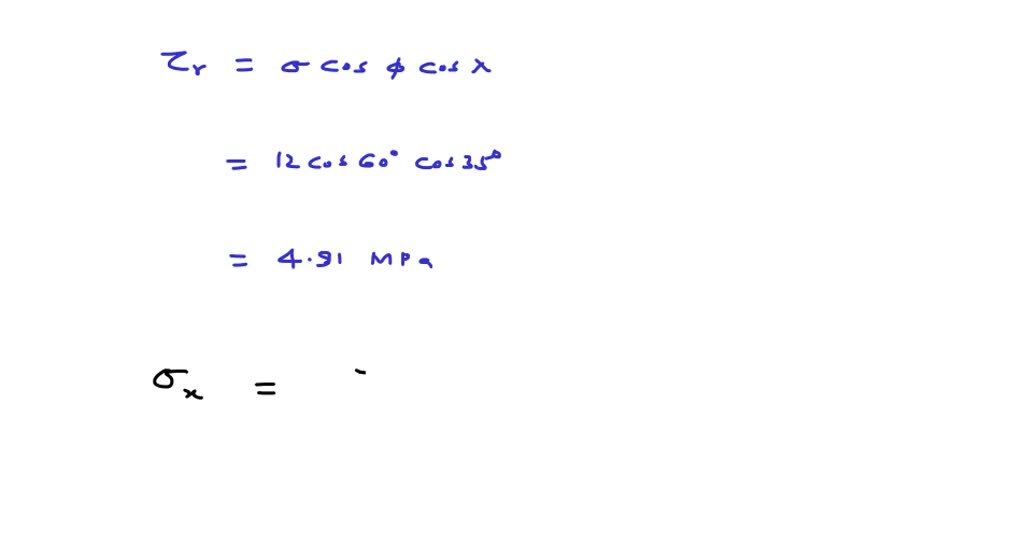 τᵣ = σ cos ϕ cos λ
= 12 cos 60° cos 35°
= 4.91 MPa
σₓ =